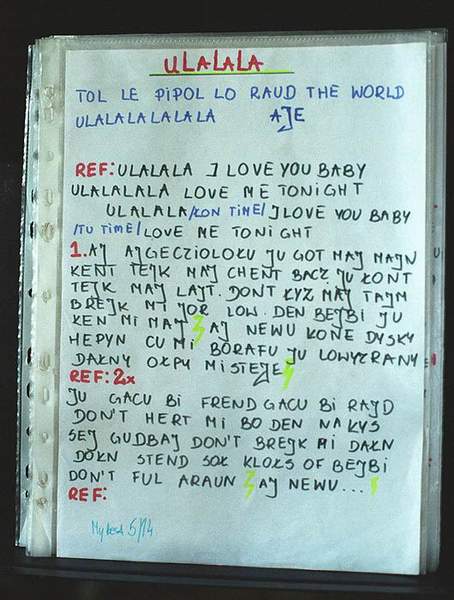 ULALALA
TOL LE PIPOL LO RAUD THE WORLD
ULALALALALALA AJE
REF: ULALALA I LOVE YOU BABY
ULALALALA LOVE ME TONIGHT
ULALALA /ŁON TIME/ I LOVE YOU BABY
/TU TIME/ LOVE ME TONIGHT
1. AJ AJGECZIOLOŁU JU GOT MAJ MAJN
KENT TEJK MAJ CHENT BACZ JU ŁONT
TEJK MAJ LAJT. DONT ŁYZ MAJ TAJM
BREJK MI JOR LOW. DEN BEJBI JU
KEN MI MAJ AJ NEWU KONE DYSKY
HEPYN CU MI BORAFU JU LOWYZRANY
DAŁNY OŁPU MISTEJE
REF: 2x
JU GACU BI FREND GACU BI RAJD
DON'T HERT MI BO DEN NA KYS
SEJ GUDBAJ DON'T BREJK MI DAŁN
DOŁN STEND SOŁ KLOŁS OF BEJBI
DON'T FUL ARAUN AJ NEWU...
REF:
5/14